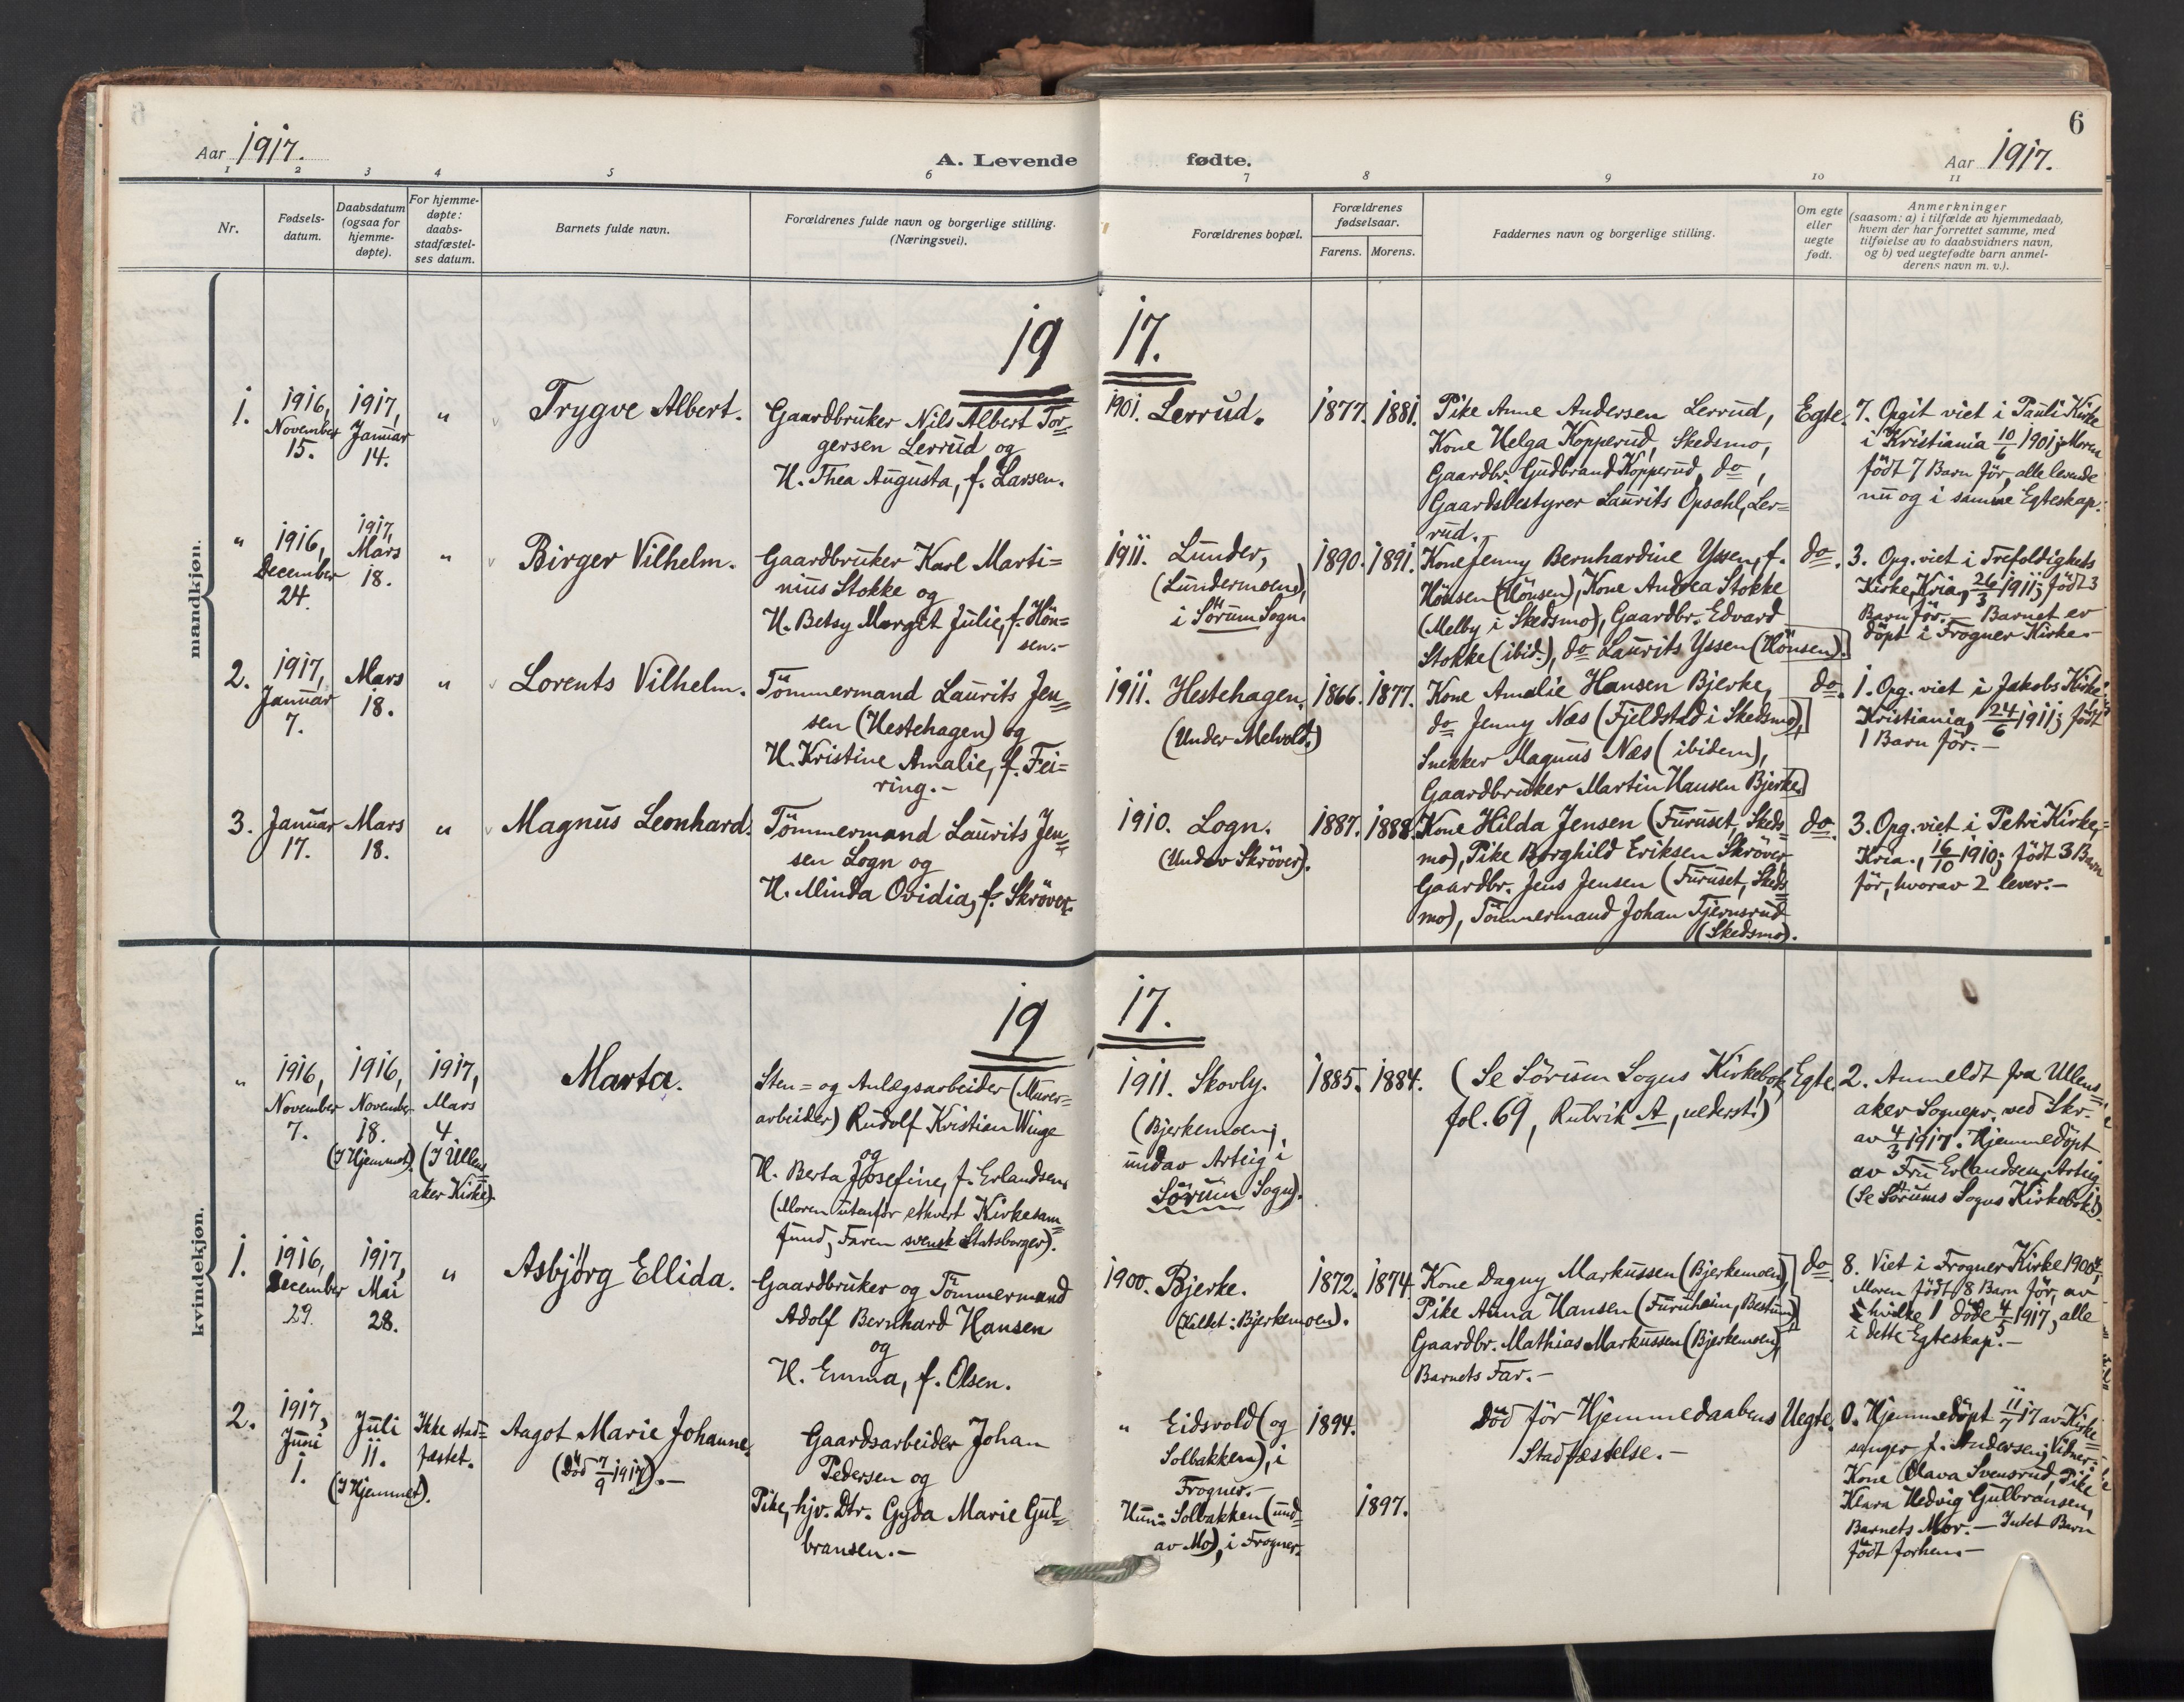 6
Aar 1917.
A. Levende fødte.
Aar 1917.
1 2 3 4 5 6 7 8 9 10 11
Nr.
Fødsels-
datum.
Daabsdatum
(ogsaa for
hjemme-
døpte).
For hjemme-
døpte:
daabs-
stadfæstel-
ses datum.
Barnets fulde navn.
Forældrenes fulde navn og borgerlige stilling.
(Næringsvei).
Forældrenes bopæl.
Forældrenes
fødselsaar.
Farens. Morens.
Faddernes navn og borgerlige stilling.
Om egte
eller
uegte
født.
Anmerkninger
(saasom: a) i tilfælde av hjemmedaab,
hvem der har forrettet samme, med
tilføielse av to daabsvidners navn,
og b) ved uegtefødte barn anmel-
derens navn m. v.).
mandkjøn.
19 17.
1.
1916,
November
15.
1917,
Januar
14.
"
Trygve Albert.
Gaardbruker Nils Albert Tor=
gersen Lerrud og
H. Thea Augusta, f. Larsen.
1901. Lerrud.
1877. 1881.
Pike Anne Andersen Lerrud,
Kone Helga Kopperud, Skedsmo,
Gaardbr. Gudbrand Kopperud, do,
Gaardsbestyrer Laurits Opsahl, Ler=
rud.-
Egte.
7. Opgit viet i Pauli Kirke
i Kristiania 10/6 1901; Moren
født 7 Barn før, alle levende
nu og i samme Egteskap.
"
1916,
December
24.
1917,
Mars
18.
"
Birger Vilhelm.
Gaardbruker Karl Marti=
nius Stokke og
H. Betsy Margit Julie, f. Hön=
sen.-
1911. Lunder,
(Lundermoene)
i Sörum Sogn.
1890. 1891.
Kone Jenny Bernhardine Yssen, f.
Hönsen (Hönsen), Kone Andrea Stokke
(Melby i Skedsmo), Gaardbr. Edvard
Stokke (ibid.), do Laurits Yssen (Hönsen).
do.
3. Opg. viet i Trefoldigheds
Kirke, Kria, 26/3 1911; födt 3
Barn för. - Barnet er
döpt i Frogner Kirke.-
2.
1917,
Januar
7.
Mars
18.
"
Lorents Vilhelm.
Tömmermand Laurits Jen=
sen (Hestehagen) og
H. Kristine Amalie, f. Fei=
ring.-
1911. Hestehagen.
(Under Melvold.)
1866. 1877.
Kone Amalie Hansen Bjerke,
do Jenny Næs (Fjeldstad i Skedsmo),
Snekker Magnus Næs (ibidem),
Gaardbruker Martin Hansen Bjerke.
do.
1. Opg. viet i Jakobs Kirke,
Kristiania, 24/6 1911; födt
1 Barn för.-
3.
Januar
17.
Mars
18.
"
Magnus Leonhard.
Tömmermand Laurits Jen=
sen Logn og
H. Minda Ovidia, f. Skröver.
1910. Logn.
(Under Skröver).
1887. 1888.
Kone Hilda Jensen (Furuset, Skeds=
mo), Pike Borghild Eriksen Skröver,
Gaardbr. Jens Jensen (Furuset, Skeds=
mo), Tömmermand Johan Tjernsrud
(Skedsmo).
do.
3. Opg. viet i Petri Kirke,
Kria., 16/10 1910; födt 3 Barn
för, hvorav 2 lever.-
kvindekjøn.
19 17.
"
1916,
November
7.
1916,
November
18.
(I Hjemmet).
1917,
Mars
4.
(I Ullens=
aker Kirke).
Marta.
Sten= og Anlegsarbeider (Murer=
arbeider) Rudolf Kristian Winge
og
H. Berta Josefine, f. Erlandsen.
(Moren utenfor ethvert Kirkesam=
fund, Faren svensk Statsborger).
1911. Skovly.
(Bjerkemoen,
undav Arteig i
Sörum Sogn).
1885. 1884.
(Se Sörum Sogns Kirkebok,
fol. 69, Rubrik A, nederst.)
Egte.
2. Anmeldt fra Ullens=
aker Sognepr. ved Skr.
av 4/3 1917. Hjemmedöpt
av Fru Erlandsen, Arteig
(Se Sörums Sogns Kirkebok!).
1.
1916,
December
29.
1917,
Mai
28.
"
Asbjörg Ellida.
Gaardbruker og Tömmermand
Adolf Bernhard Hansen
og
H. Emma, f. Olsen.
1900. Bjerke.
(Kaldet: Bjerkemoen).
1872. 1874.
Kone Dagny Markussen (Bjerkemoen),
Pike Anna Hansen (Furuheim, Bestum),
Gaardbr. Mathias Markussen (Bjerkemoen),
Barnets Far.-
do.
8. Viet i Frogner Kirke 1900;
Moren födt 8 Barn för, av
hvilke 1 döde 4/5 1917, alle
i dette Egteskap.-
2.
1917,
Juni
1.
Juli
11.
(I Hjemmet).
Ikke stad=
fæstet.
Aagot Marie Johanne.
(Död 7/9 1917).-
Gaardsarbeider Johan
Pedersen og
Pike, hjv. Dtr. Gyda Marie Gul=
bransen.-
" Eidsvold (og
Solbakken), i
Frogner.-
Hun: Solbakken (und=
av Mo), i Frogner.
1894.
1897.
Död för Hjemmedaabens
Stadfæstelse.-
Uegte.
0. Hjemmedöpt 11/7 17 av Kirke=
sanger J. Andersen; Vidner:
Kone Olava Svensrud, Pike
Klara Hedvig Gulbransen,
Barnets Mor.- Intet Barn
födt forhen.-